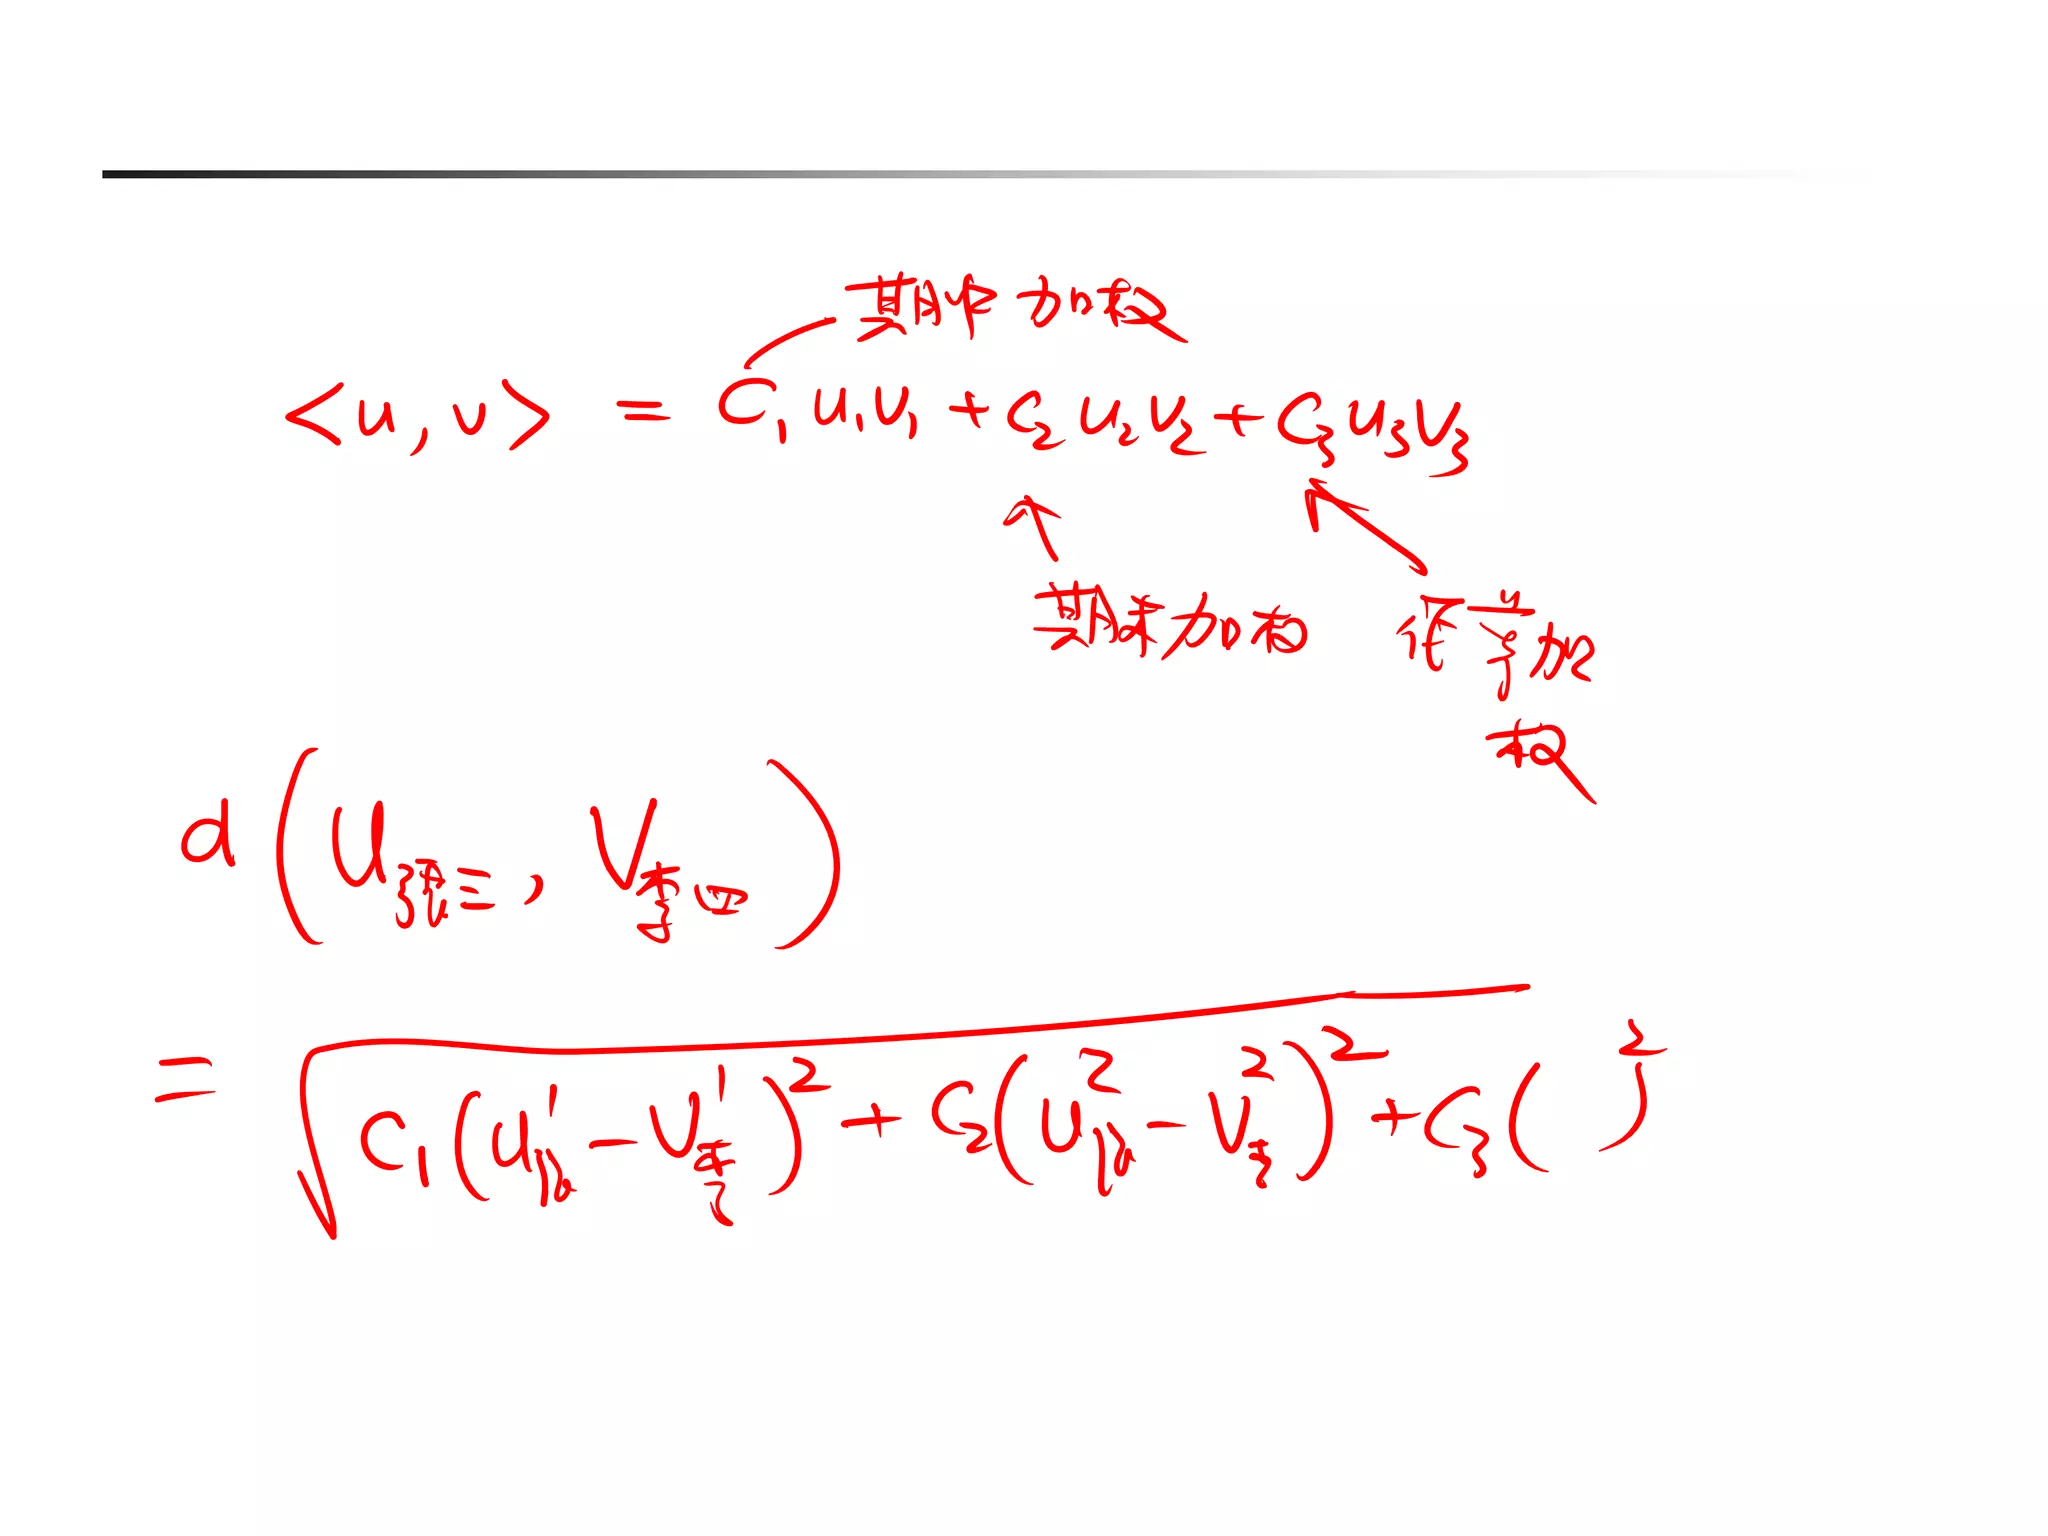 期中加权
<u,v> = C₁u₁v₁ + C₂u₂v₂ + C₃u₃v₃
期末加权 作业加
权
d(U张三, V李四)
= √C₁(u¹张 - v¹李)² + C₂(u²张 - v²李)² + C₃( )²